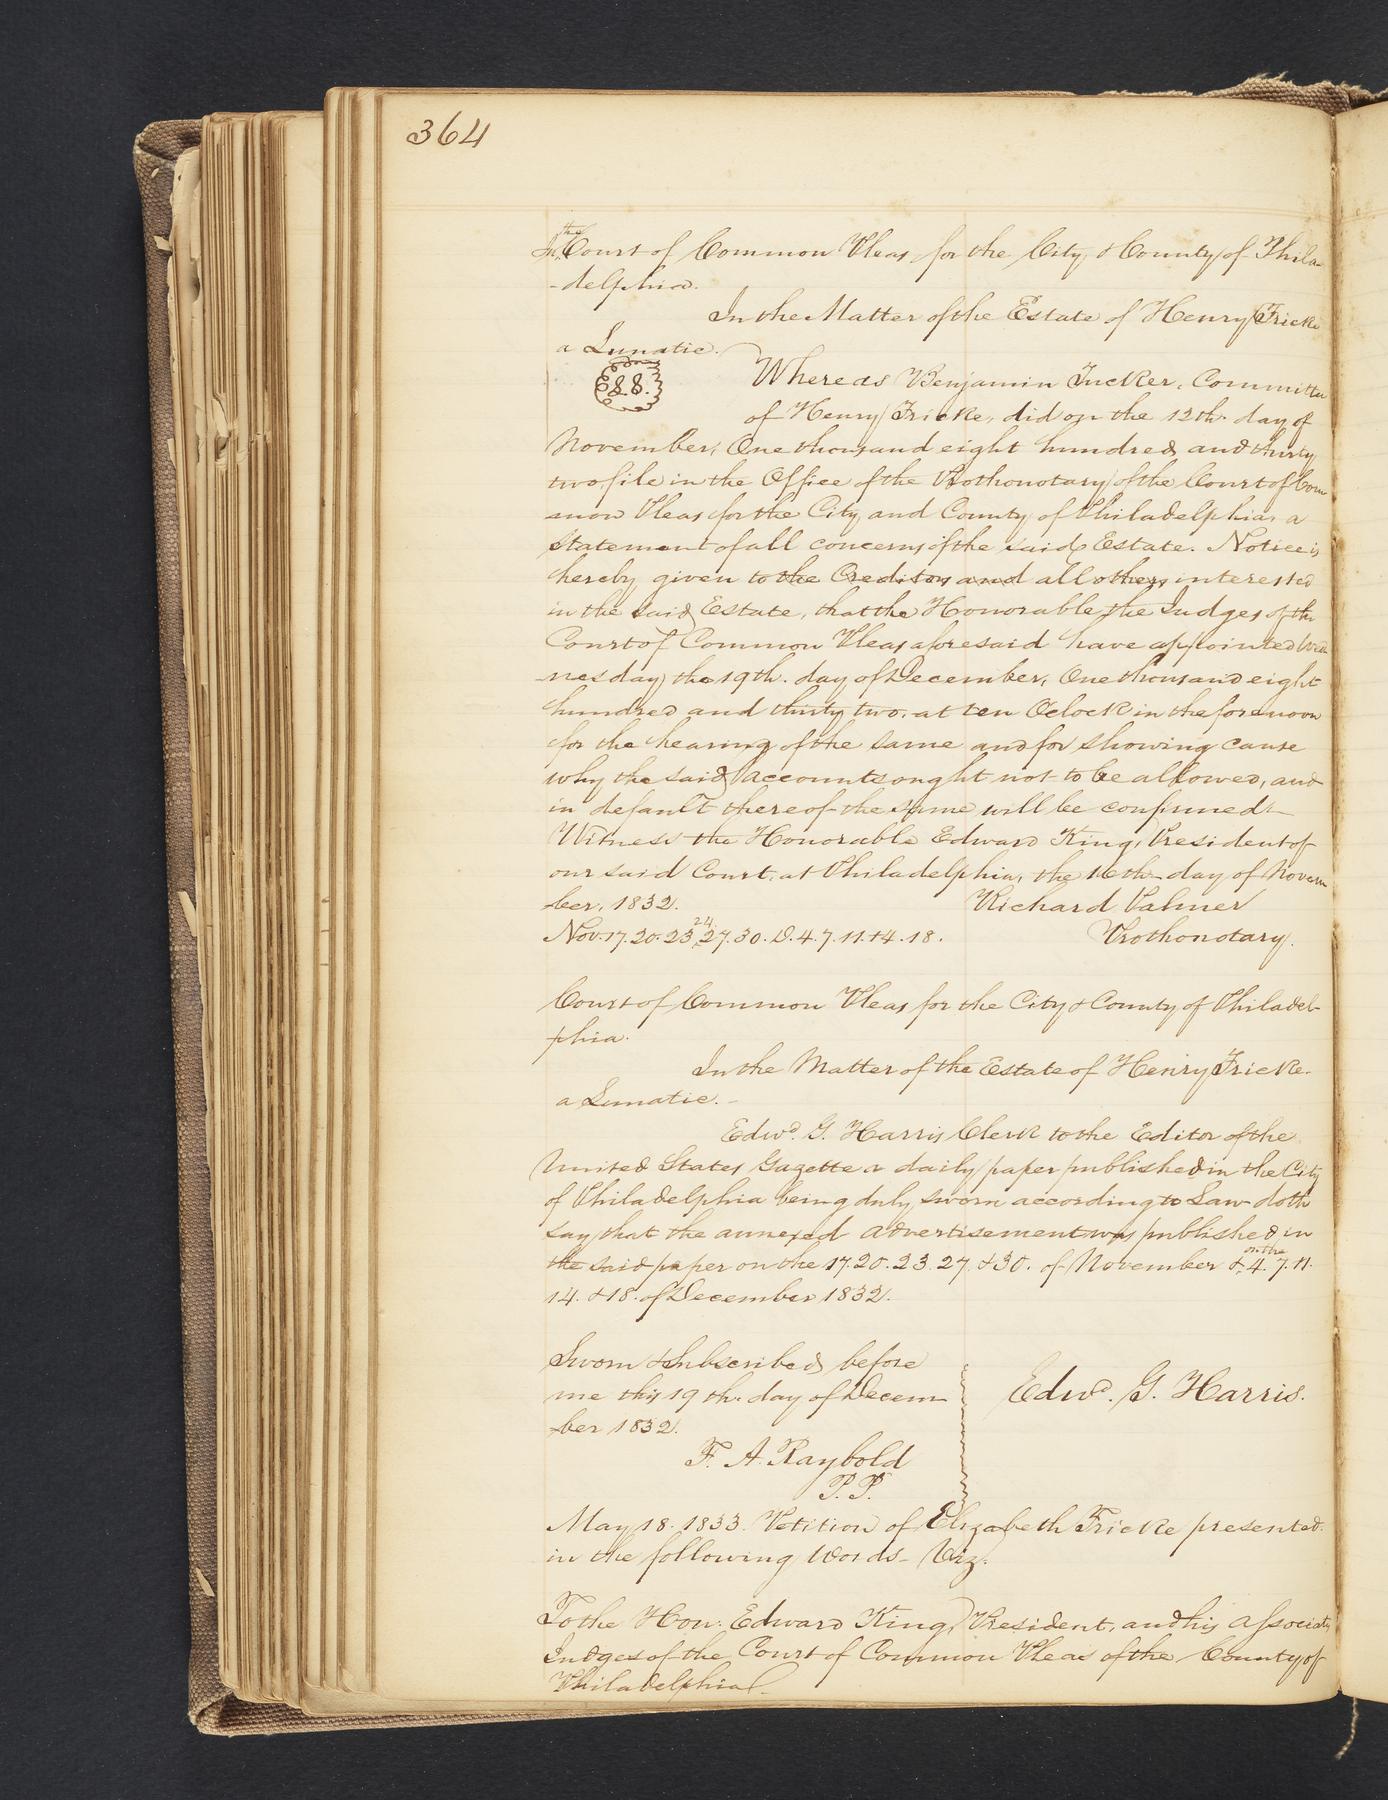 364
In the Court of Common Pleas, for the City & County of Phila-
-delphia.
In the Matter of the Estate of Henry Fricke
a Lunatic.
L.S.
Whereas Benjamin Tucker, Committee
of Henry Fricke, did on the 12th. day of
November, One thousand eight hundred and thirty
two file in the Office of the Prothonotary of the Court of Com
mon Pleas for the City and County of Philadelphia, a
statement of all concerns of the said Estate. Notice is
hereby given to the Creditors and all others interested
in the said Estate, that the Honorable the Judges of the
Court of Common Pleas aforesaid have appointed Wed
nesday the 19th. day of December, One thousand eight
hundred and thirty two. at ten Oclock in the forenoon
for the hearing of the same and for showing cause
why the said accounts ought not to be allowed, and
in default thereof the same will be confirmed.
Witness the Honorable Edward King, President of
our said Court, at Philadelphia, the 16th day of Novem
ber, 1832.
Richard Palmer
Nov. 17. 20. 23. 24 27. 30. D. 4. 7. 11. 14. 18.
Prothonotary.
Court of Common Pleas for the City & County of Philadel-
phia.
In the Matter of the Estate of Henry Fricke.
a Lunatic.
Edwd. G. Harris Clerk to the Editor of the
United States Gazette a daily paper published in the City
of Philadelphia being duly sworn according to Law doth
say that the annexed advertisement was published in
the said paper on the 17. 20. 23. 27. & 30. of November & on the 4. 7. 11.
14. & 18. of December 1832.
Sworn & Subscribed before
me this 19th. day of Decem
ber 1832.
Edwd. G. Harris.
F. A. Raybold
P. P.
May 18. 1833. Petition of Elizabeth Fricke presented.
in the following Words- Viz:
To the Hon: Edward King, President, and his Associate
Judges of the Court of Common Pleas of the County of
Philadelphia.